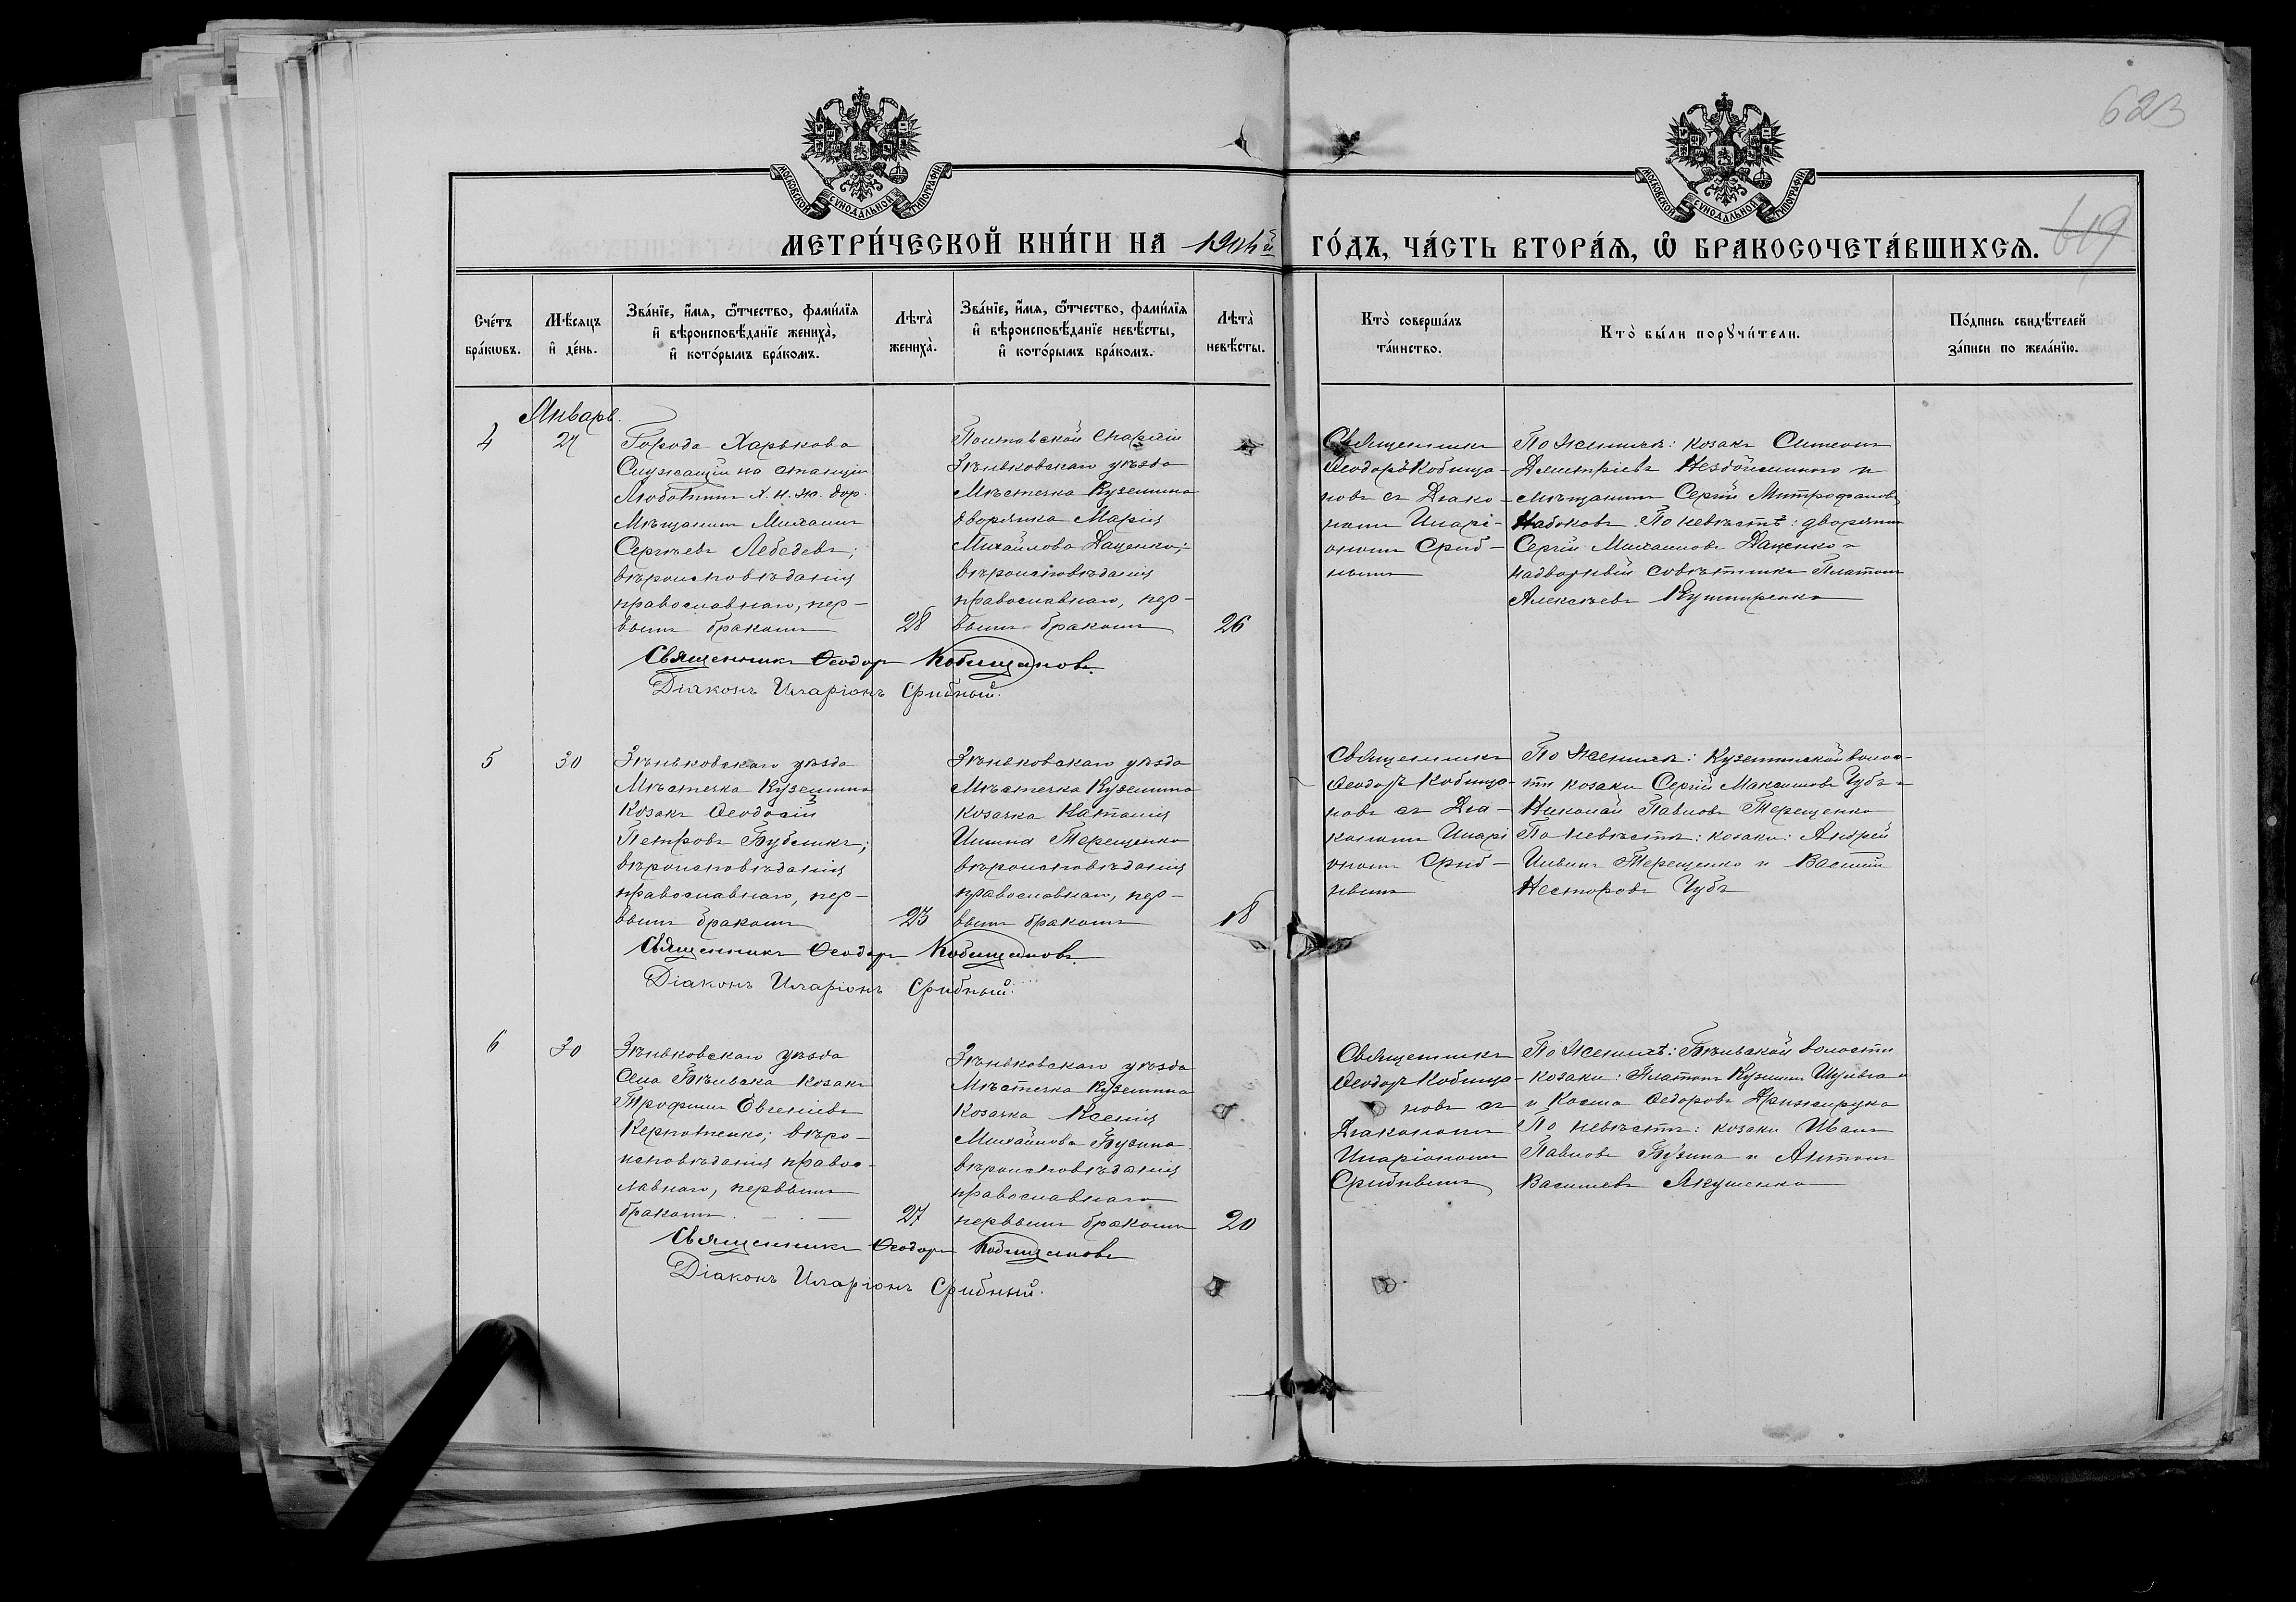 623
619
МОСКОВСКОЙ СѴНОДАЛЬНОЙ ТИПОГРАФІИ
МОСКОВСКОЙ СѴНОДАЛЬНОЙ ТИПОГРАФІИ
МЕТРИ́ЧЕСКОЙ КНИ́ГИ НА 1904й ГО́ДЪ, ЧА́СТЬ ВТОРА́Ѧ, Ѽ БРАКОСОЧЕТА́ВШИХСѦ.
Сче́тъ бра́кѡвъ.
Мѣ́сѧцъ и҆ де́нь.
Зва́нїе, и҆́мѧ, ѻ҆́тчество, фами́лїѧ и҆ вѣроисповѣ́данїе жениха̀, и҆ кото́рымъ бра́комъ.
Лѣта̀ жениха̀.
Зва́нїе, и҆́мѧ, ѻ҆́тчество, фами́лїѧ и҆ вѣроисповѣ́данїе невѣ́сты, и҆ кото́рымъ бра́комъ.
Лѣта̀ невѣ́сты.
Кто̀ соверша́лъ та́инство.
Кто̀ бы́ли порꙋчи́тели.
По́дпись свидѣ́телей за́писи по жела́нїю.
Январь.
4
27
Города Харькова
Служащій на станціи
Люботинъ Х. Н. ж. дор.
Мѣщанинъ Михаилъ
Сергѣевъ Лебедевъ;
вѣроисповѣданія
православнаго, пер-
вымъ бракомъ
28
Полтавской Епархіи
Зѣньковскаго уѣзда
Мѣстечка Куземина
дворянка Марія
Михайлова Даценко;
вѣроисповѣданія
православнаго, пер-
вымъ бракомъ
26
Священникъ
Ѳеодоръ Кобища-
новъ съ Діако-
номъ Иларі-
ономъ Сриб-
нымъ
По женихѣ: козакъ Симеонъ
Димитріевъ Нездойминого и
мѣщанинъ Сергій Митрофановъ
Набоковъ. По невѣстѣ: дворянинъ
Сергій Михаиловъ Даценко и
надворный совѣтникъ Платонъ
Алексѣевъ Кушниренко
Священникъ Ѳеодоръ Кобищановъ.
Діаконъ Иларіонъ Срибный.
5
30
Зѣньковскаго уѣзда
Мѣстечка Куземина
Козакъ Ѳеодосій
Петровъ Бубликъ;
вѣроисповѣданія
православнаго, пер-
вымъ бракомъ
23
Зѣньковскаго уѣзда
Мѣстечка Куземина
козачка Наталія
Терещенко
вѣроисповѣданія
православнаго, пер-
вымъ бракомъ
18
Священникъ
Ѳеодоръ Кобища-
новъ съ Діа-
кономъ Иларі
ономъ Сриб-
нымъ
По женихѣ: Куземинской волос-
ти козаки Сергій Максимовъ Чубъ и
Николай Павловъ Терещенко
По невѣстѣ: козаки: Андрей
Терещенко и Василій
Несторовъ Чубъ
Священникъ Ѳеодоръ Кобищановъ.
Діаконъ Иларіонъ Срибный.
6
30
Зѣньковскаго уѣзда
Села Бѣльска козакъ
Трофимъ Евгеніевъ
вѣро-
исповѣданія правос-
лавнаго, первымъ
бракомъ.
27
Зѣньковскаго уѣзда
Мѣстечка Куземина
Козачка Ксенія
Михайлова Бузина
вѣроисповѣданія
православнаго
первымъ бракомъ
20
Священникъ
Ѳеодоръ Кобища-
новъ съ
Діакономъ
Иларіономъ
Срибнымъ
По женихѣ: Бѣльской волости
козаки: Платонъ Кузминъ Шульга и
и Косма Ѳедоровъ
По невѣстѣ: козаки Иванъ
Павловъ Бузина и Антонъ
Василіевъ Якушенко
Священникъ Ѳеодоръ Кобищановъ
Діаконъ Иларіонъ Срибный.